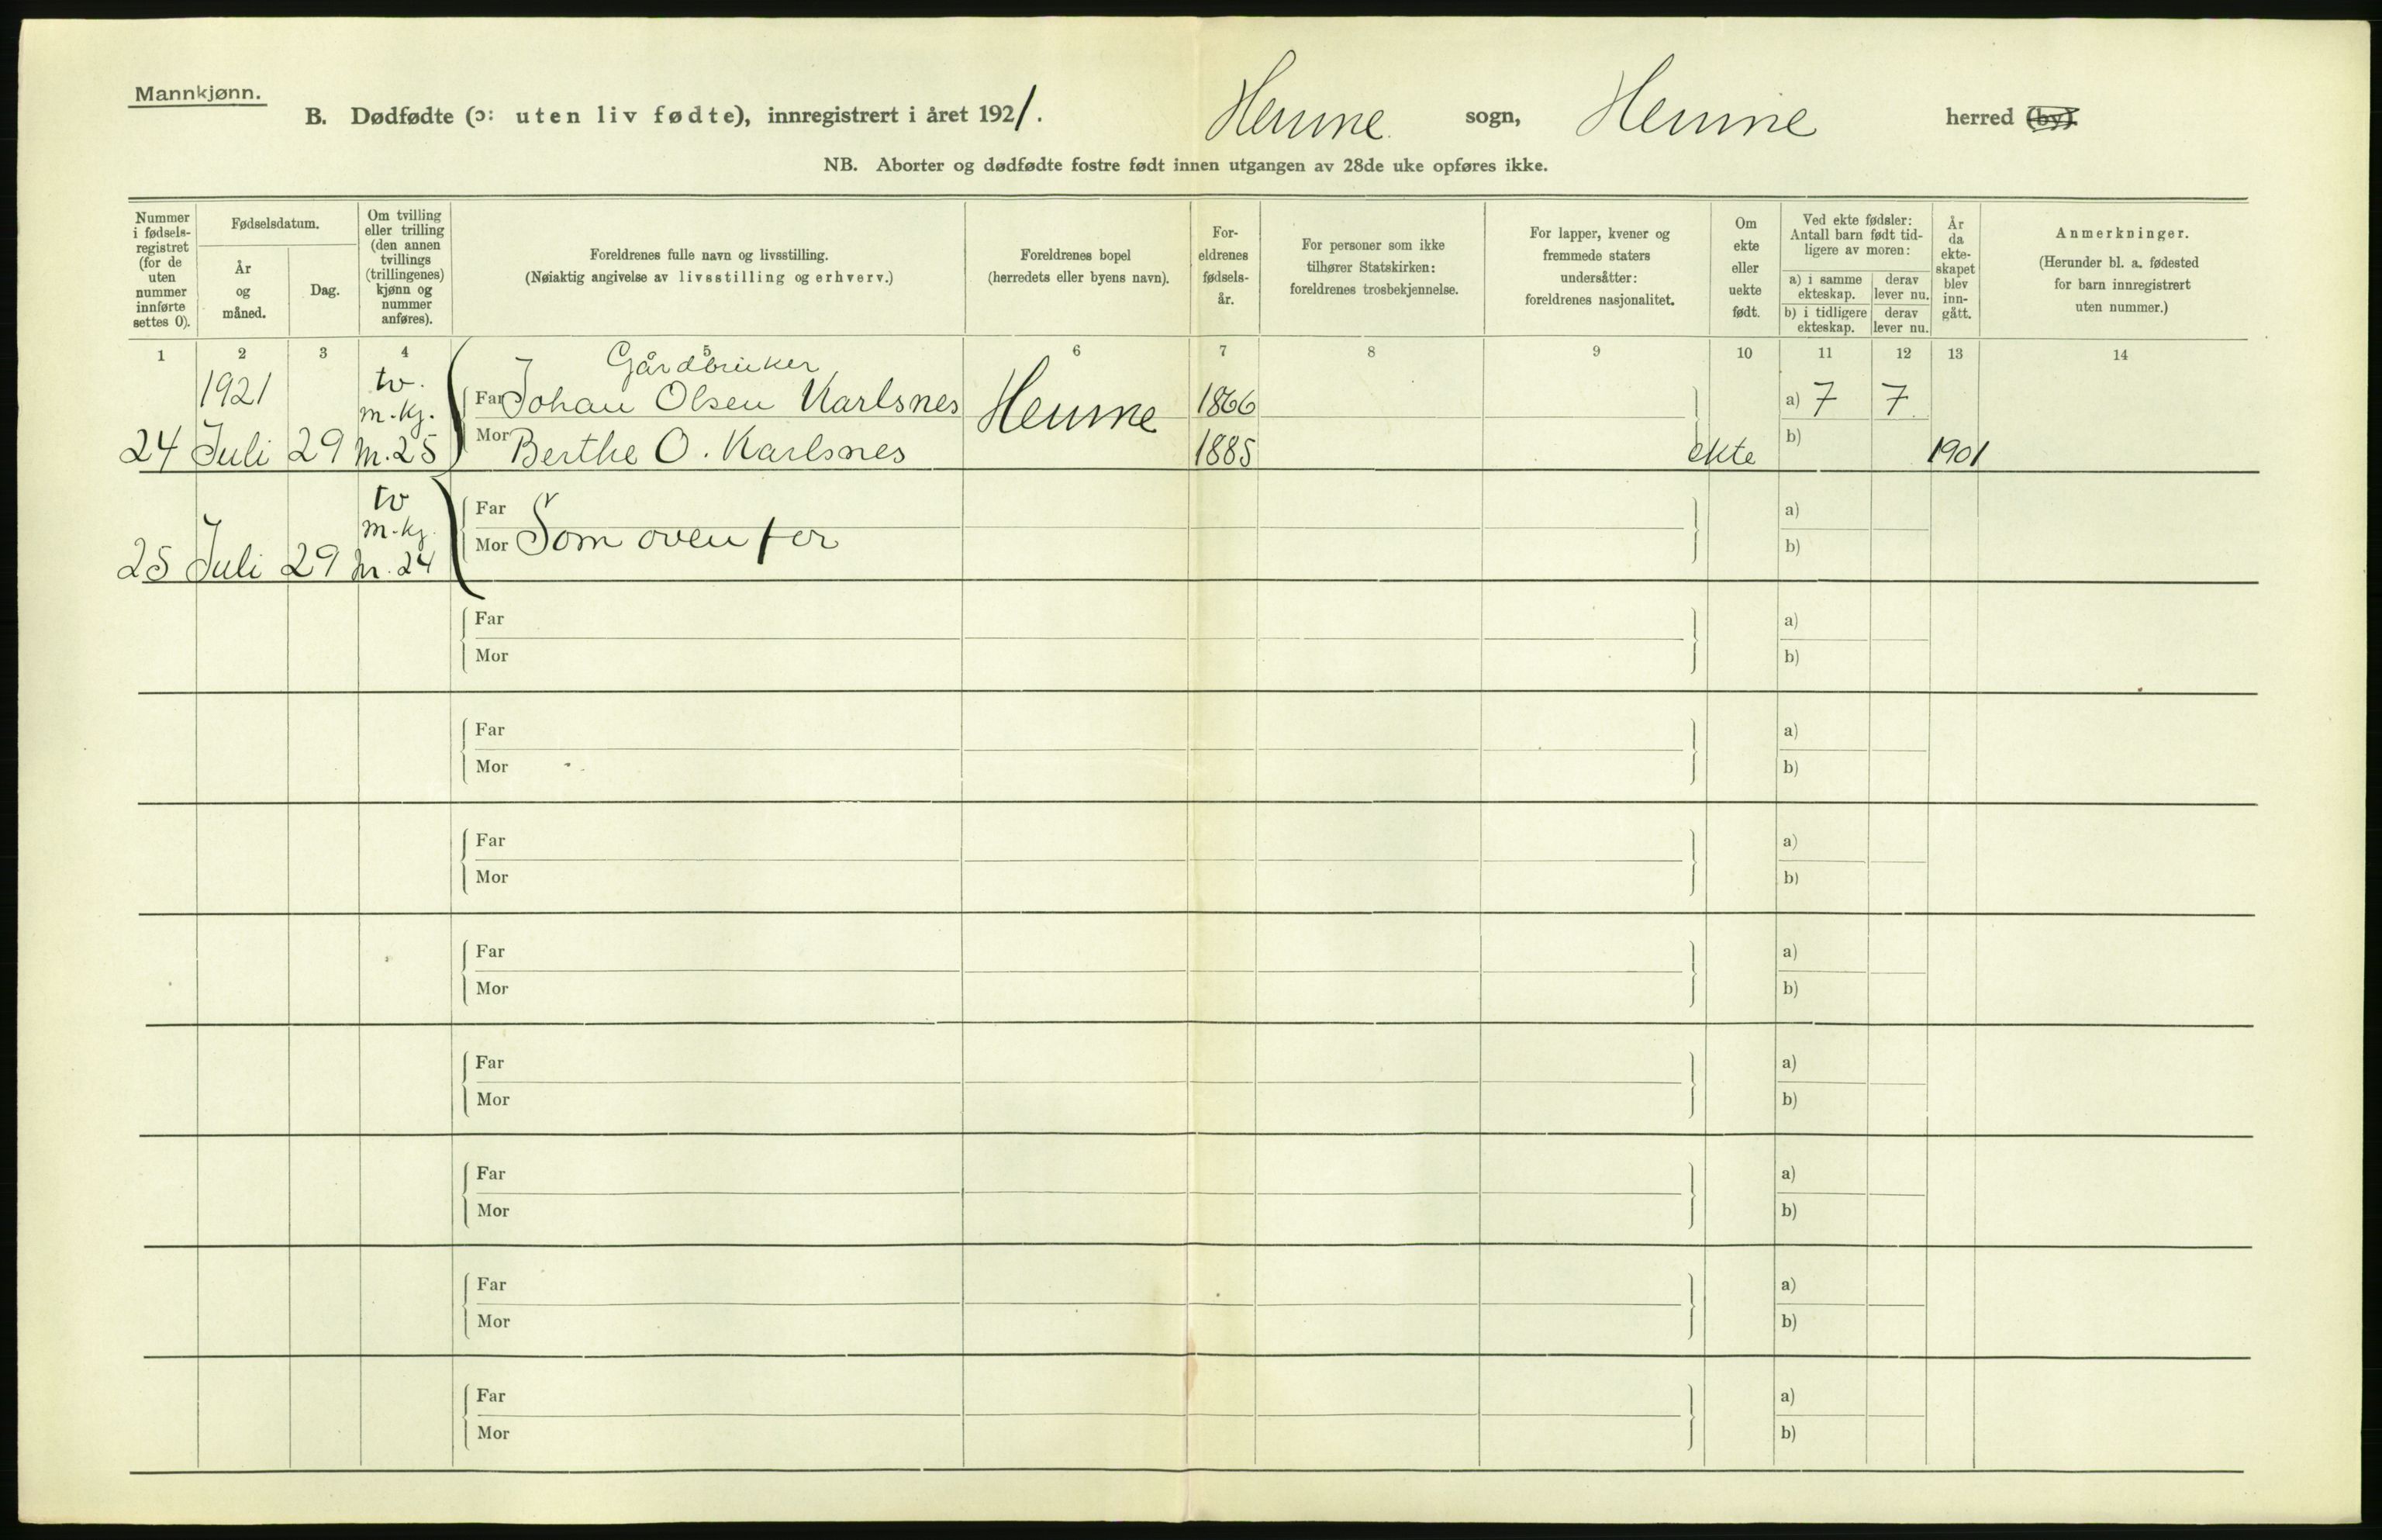 Mannkjønn.
B. Dødfødte (ɔ: uten liv fødte), innregistrert i året 1921. Hemne sogn, Hemne herred (by).
NB. Aborter og dødfødte fostre født innen utgangen av 28de uke opføres ikke.
Nummer i fødsels-registret (for de uten nummer innførte settes 0).
Fødselsdatum.
År og måned.
Dag.
Om tvilling eller trilling (den annen tvillings (trillingenes) kjønn og nummer anføres).
Foreldrenes fulle navn og livsstilling.
(Nøiaktig angivelse av livsstilling og erhverv.)
Foreldrenes bopel
(herredets eller byens navn).
For-eldrenes fødsels-år.
For personer som ikke tilhører Statskirken: foreldrenes trosbekjennelse.
For lapper, kvener og fremmede staters undersåtter: foreldrenes nasjonalitet.
Om ekte eller uekte født.
Ved ekte fødsler: Antall barn født tid-ligere av moren:
a) i samme ekteskap.
derav lever nu.
b) i tidligere ekteskap.
derav lever nu.
År da ekte-skapet blev inn-gått.
Anmerkninger.
(Herunder bl. a. fødested for barn innregistrert uten nummer.)
1 2 3 4 5 6 7 8 9 10 11 12 13 14
Gårdbruker
1921 tv. m.kj. Far Johan Olsen Karlsnes Hemne 1866 a) 7 7
24 Juli 29 Nr. 25 Mor Berthe O. Karlsnes 1885 ekte b) 1901
tv m.kj. Far a)
25 Juli 29 Nr. 24 Mor Som ovenfor b)
Far a)
Mor b)
Far a)
Mor b)
Far a)
Mor b)
Far a)
Mor b)
Far a)
Mor b)
Far a)
Mor b)
Far a)
Mor b)
Far a)
Mor b)